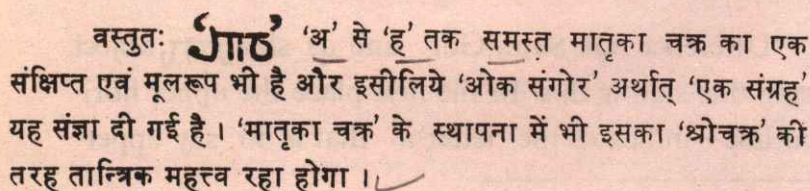 वस्तुतः ‘𑆏𑆀’ ‘अ’ से ‘ह’ तक समस्त मातृका चक्र का एक
संक्षिप्त एवं मूलरूप भी है और इसीलिये ‘ओक संगोर’ अर्थात् ‘एक संग्रह’
यह संज्ञा दी गई है । ‘मातृका चक्र’ के स्थापना में भी इसका ‘श्रीचक्र’ की
तरह तान्त्रिक महत्त्व रहा होगा ।